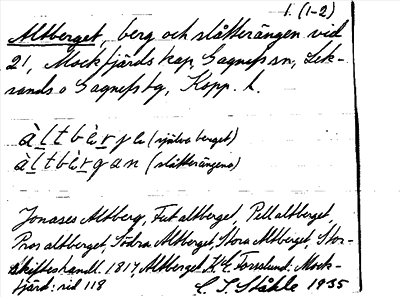 1. (1-2)
Altberget, berg och slåtterängen vid
21, Mockfjärds kap, Gagnefs sn, Lek-
sands o Gagnefs tg, Kopp. l.
àltbèrge (själva berget)
àltbèrgan (slåtterängena)
Jonases Altberg, Futaltberget, Pellaltberget,
Prosaltberget, Södra Altberget, Stora Altberget, Stor-
skifteshandl. 1817, Altberget K.E. Forsslund: Mock-
fjärd: sid 118
C. I. Ståhle 1935